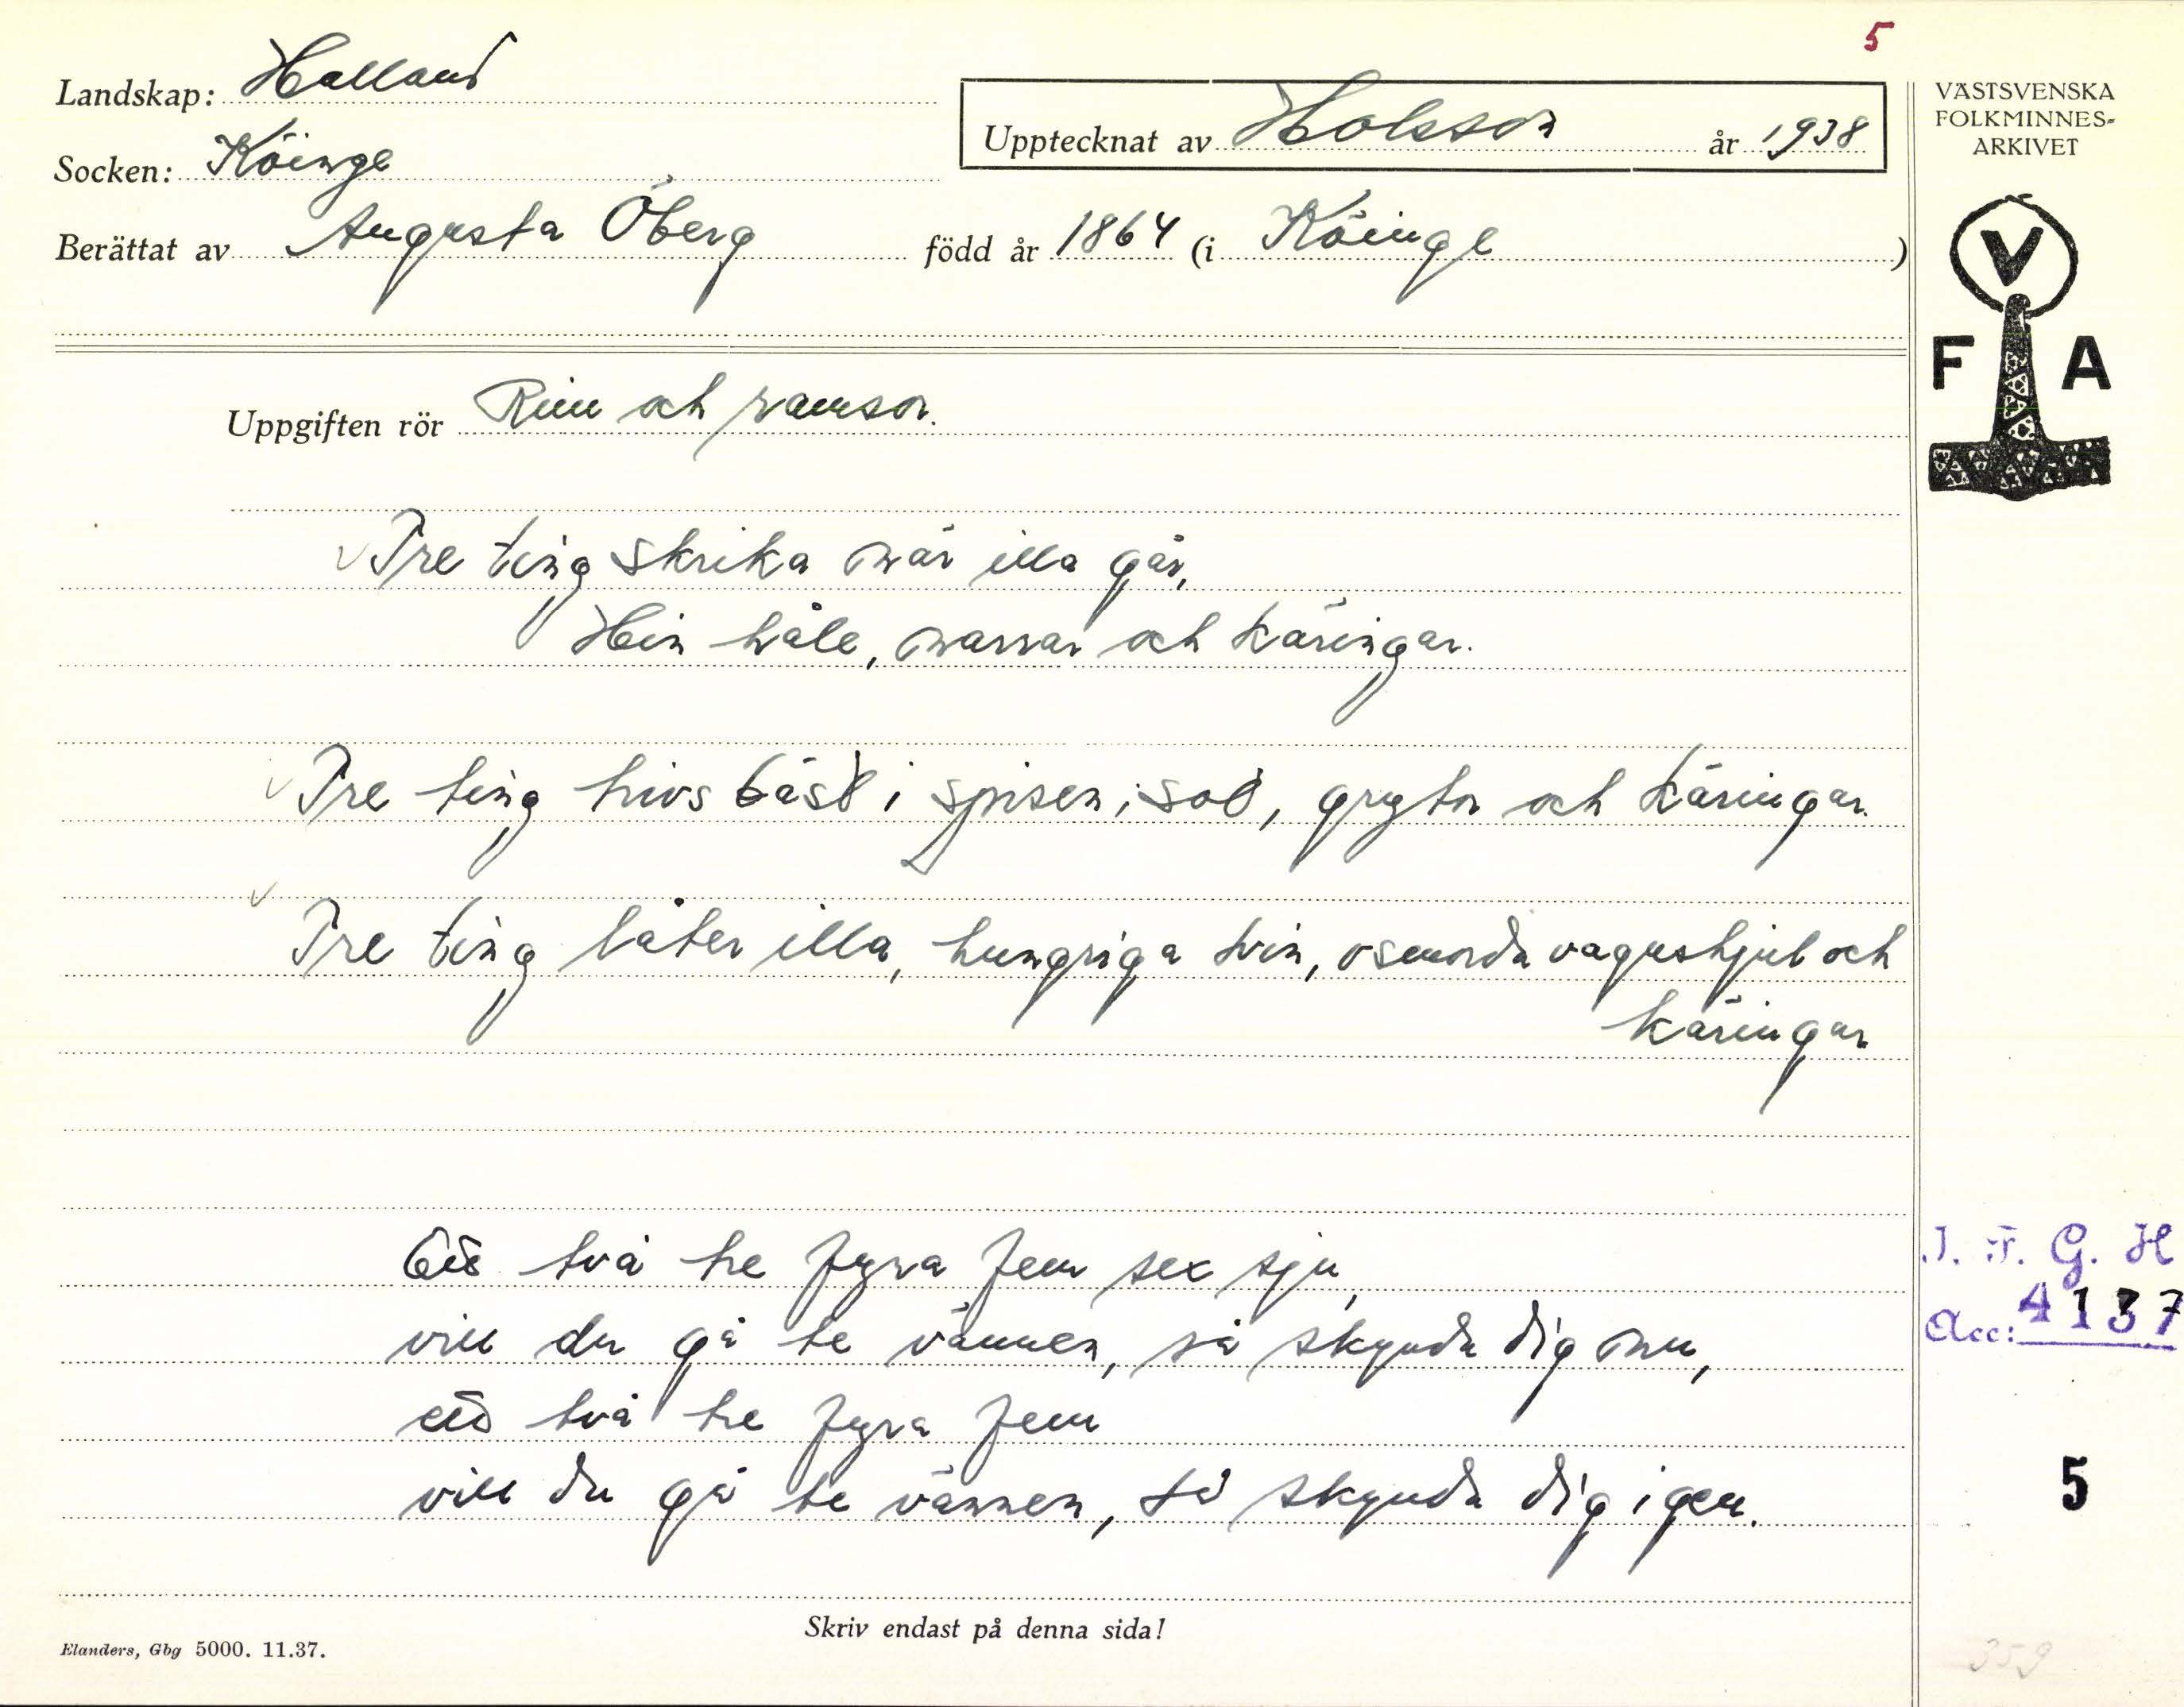 5
Landskap: Halland
Upptecknat av Holsson år 1938
Socken: Köinge
Berättat av Augusta Öberg född år 1864 (i Köinge)
Uppgiften rör Rim och ramsor.
Tre ting skrika när illa går,
Hin håle, narrar och käringar.
Tre ting trivs bäst i spisen; sot, grytor och käringar.
Tre ting låter illa, hungriga svin, osmorda vagnshjul och
käringar
Ett två tre fyra fem sex sju,
vill du gå te vännen, så skynda dig nu,
ett två tre fyra fem
vill du gå te vännen, så skynda dig igen.
Skriv endast på denna sida!
Elanders, Gbg 5000. 11.37.
VÄSTSVENSKA
FOLKMINNES-
ARKIVET
V
F A
I. F. G. H
Acc: 4137
5
359